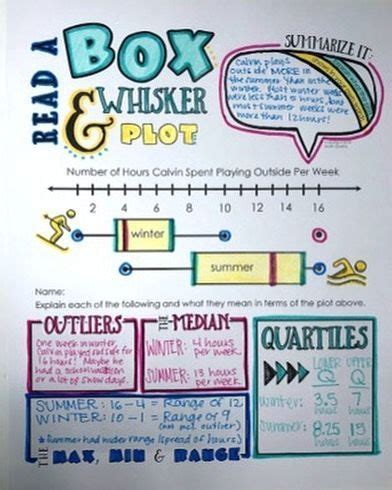 READ A
BOX
& WHISKER
PLOT
SUMMARIZE IT:
Calvin plays
outside MORE in
the summer than in the
winter. Most winter weeks
were less than 8 hours, but
most summer weeks were
more than 12 hours!
Number of Hours Calvin Spent Playing Outside Per Week
2 4 6 8 10 12 14 16
winter
summer
Name:
Explain each of the following and what they mean in terms of the plot above.
OUTLIERS
One week in winter,
Calvin played outside for
16 hours! Maybe he
had a school vacation
or a lot of snow days.
THE MEDIAN
WINTER: 4 hours
per week
SUMMER: 13 hours
per week
QUARTILES
LOWER UPPER
Q Q
Winter: 3.5 7
hours hours
Summer: 8.25 15
hours hours
SUMMER: 16-4 = Range of 12
WINTER: 10-1 = Range of 9
(not incl. outlier)
*Summer had wider range (spread of hours)
THE MAX, MIN & RANGE